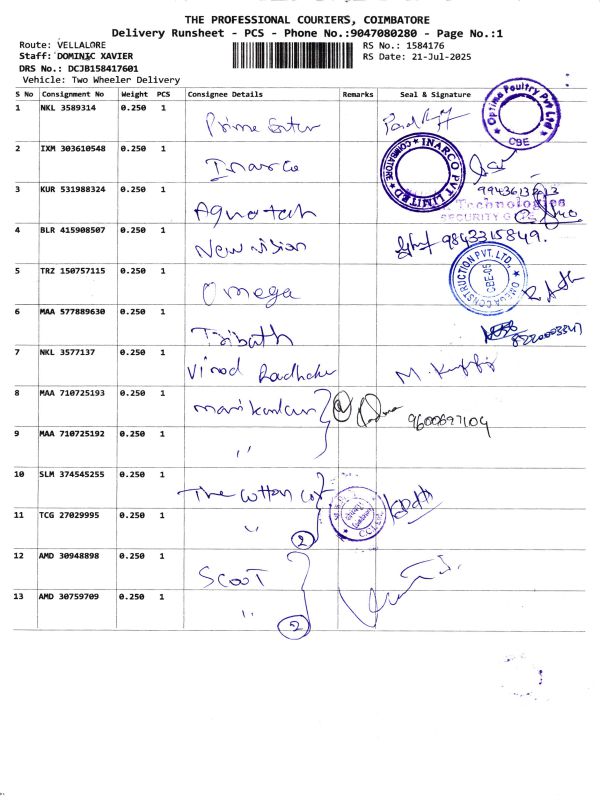 THE PROFESSIONAL COURIERS, COIMBATORE
Delivery Runsheet - PCS - Phone No.:9047080280 - Page No.:1
Route: VELLALORE
RS No.: 1584176
Staff: DOMINIC XAVIER
RS Date: 21-Jul-2025
DRS No.: DCJB158417601
Vehicle: Two Wheeler Delivery
S No Consignment No Weight PCS Consignee Details Remarks Seal & Signature
1 NKL 3589314 0.250 1 Prime
Optima Poultry Pvt Ltd CBE
2 IXM 303610548 0.250 1 Inarco
INARCO PVT LIMITED COIMBATORE
3 KUR 531988324 0.250 1 Aquatech
Technologies
SECURITY
4 BLR 415908507 0.250 1 New vision 9843315849.
5 TRZ 150757115 0.250 1 Omega
OMEGA CONSTRUCTION PVT. LTD., CBE-05
6 MAA 577889630 0.250 1
7 NKL 3577137 0.250 1 Vinod
8 MAA 710725193 0.250 1 Manikandan 9600697104
9 MAA 710725192 0.250 1 ,,
10 SLM 374545255 0.250 1 The Cotton
11 TCG 27029995 0.250 1 ,, 2
12 AMD 30948898 0.250 1 SCOOT
13 AMD 30759709 0.250 1 ,, 2